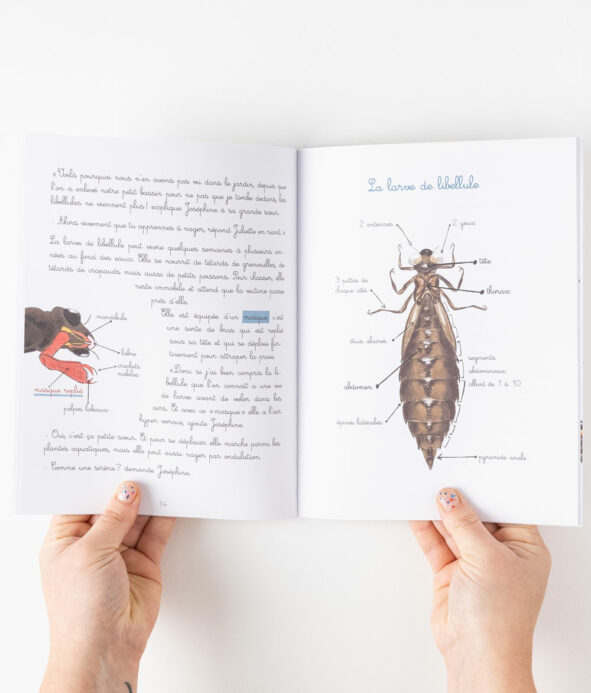 « Voilà pourquoi nous n'en avons pas vu dans le jardin, depuis que
l'on a enlevé notre petit bassin pour ne pas que je tombe dedans, les
libellules ne viennent plus ! explique Joséphine à sa grande sœur.
- Alors vivement que tu apprennes à nager, répond Juliette en riant. »
La larve de libellule peut vivre quelques semaines à plusieurs an-
nées au fond des eaux. Elle se nourrit de têtards de grenouilles, de
têtards de crapauds mais aussi de petits poissons. Pour chasser, elle
reste immobile et attend que la victime passe
près d'elle.
Elle est équipée d'un masque, c'est
une sorte de bras qui est replié
sous sa tête et qui se déploie fur-
tivement pour attraper la proie.
« Donc si j'ai bien compris la li-
bellule que l'on connaît a une vie
de larve avant de voler dans les
airs. Et avec ce « masque » elle a l'air
hyper vorace, ajoute Joséphine.
- Oui, c'est ça petite sœur. Et pour se déplacer elle marche parmi les
plantes aquatiques, mais elle peut aussi nager par ondulation.
- Comme une sirène ? demande Joséphine.
mandibule
labre
crochets
mobiles
masque replié
palpes labiaux
14
La larve de libellule
2 antennes
2 yeux
tête
3 pattes de
chaque côté
thorax
étuis alaires
segments
abdominaux
allant de 1 à 10
abdomen
épines latérales
pyramide anale